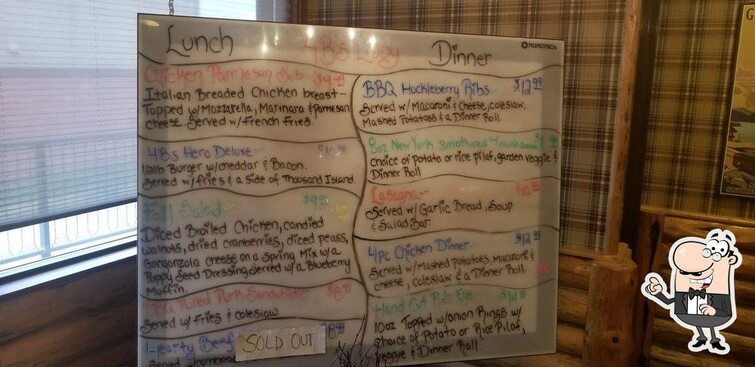 Lunch
Chicken Parmesan Sub $9.99
Italian Breaded Chicken breast~
Topped w/Mozzarella, Marinara & Parmesan
cheese Served w/French Fries
4Bs Hero Deluxe~
Burger w/cheddar & Bacon.
Served w/fries & a side of Thousand Island
Fall Salad~ $9
Diced Broiled Chicken, candied
walnuts, dried cranberries, diced pears,
Gorgonzola cheese on a Spring Mix w/a
Poppy Seed Dressing. Served w/a Blueberry
Muffin
Pulled Pork Sandwich $8
Served w/ Fries & coleslaw.
Hearty Beef
SOLD OUT
Dinner
NUMONICS
BBQ Huckleberry Ribs $12.99
Served w/ Macaroni & Cheese, coleslaw,
Mashed Potatoes & a Dinner Roll.
8oz New York Smothered
choice of potato or rice pilaf, garden veggie &
Dinner Roll
Lasagna~
Served w/ Garlic Bread, Soup
& Salad Bar.
4pc Chicken Dinner $12.99
Served w/Mashed Potatoes, Macaroni &
cheese, Coleslaw & a Dinner Roll
Hand Cut Rib Eye
10oz Topped w/onion Rings w/
choice of Potato or Rice Pilaf,
veggie & Dinner Roll